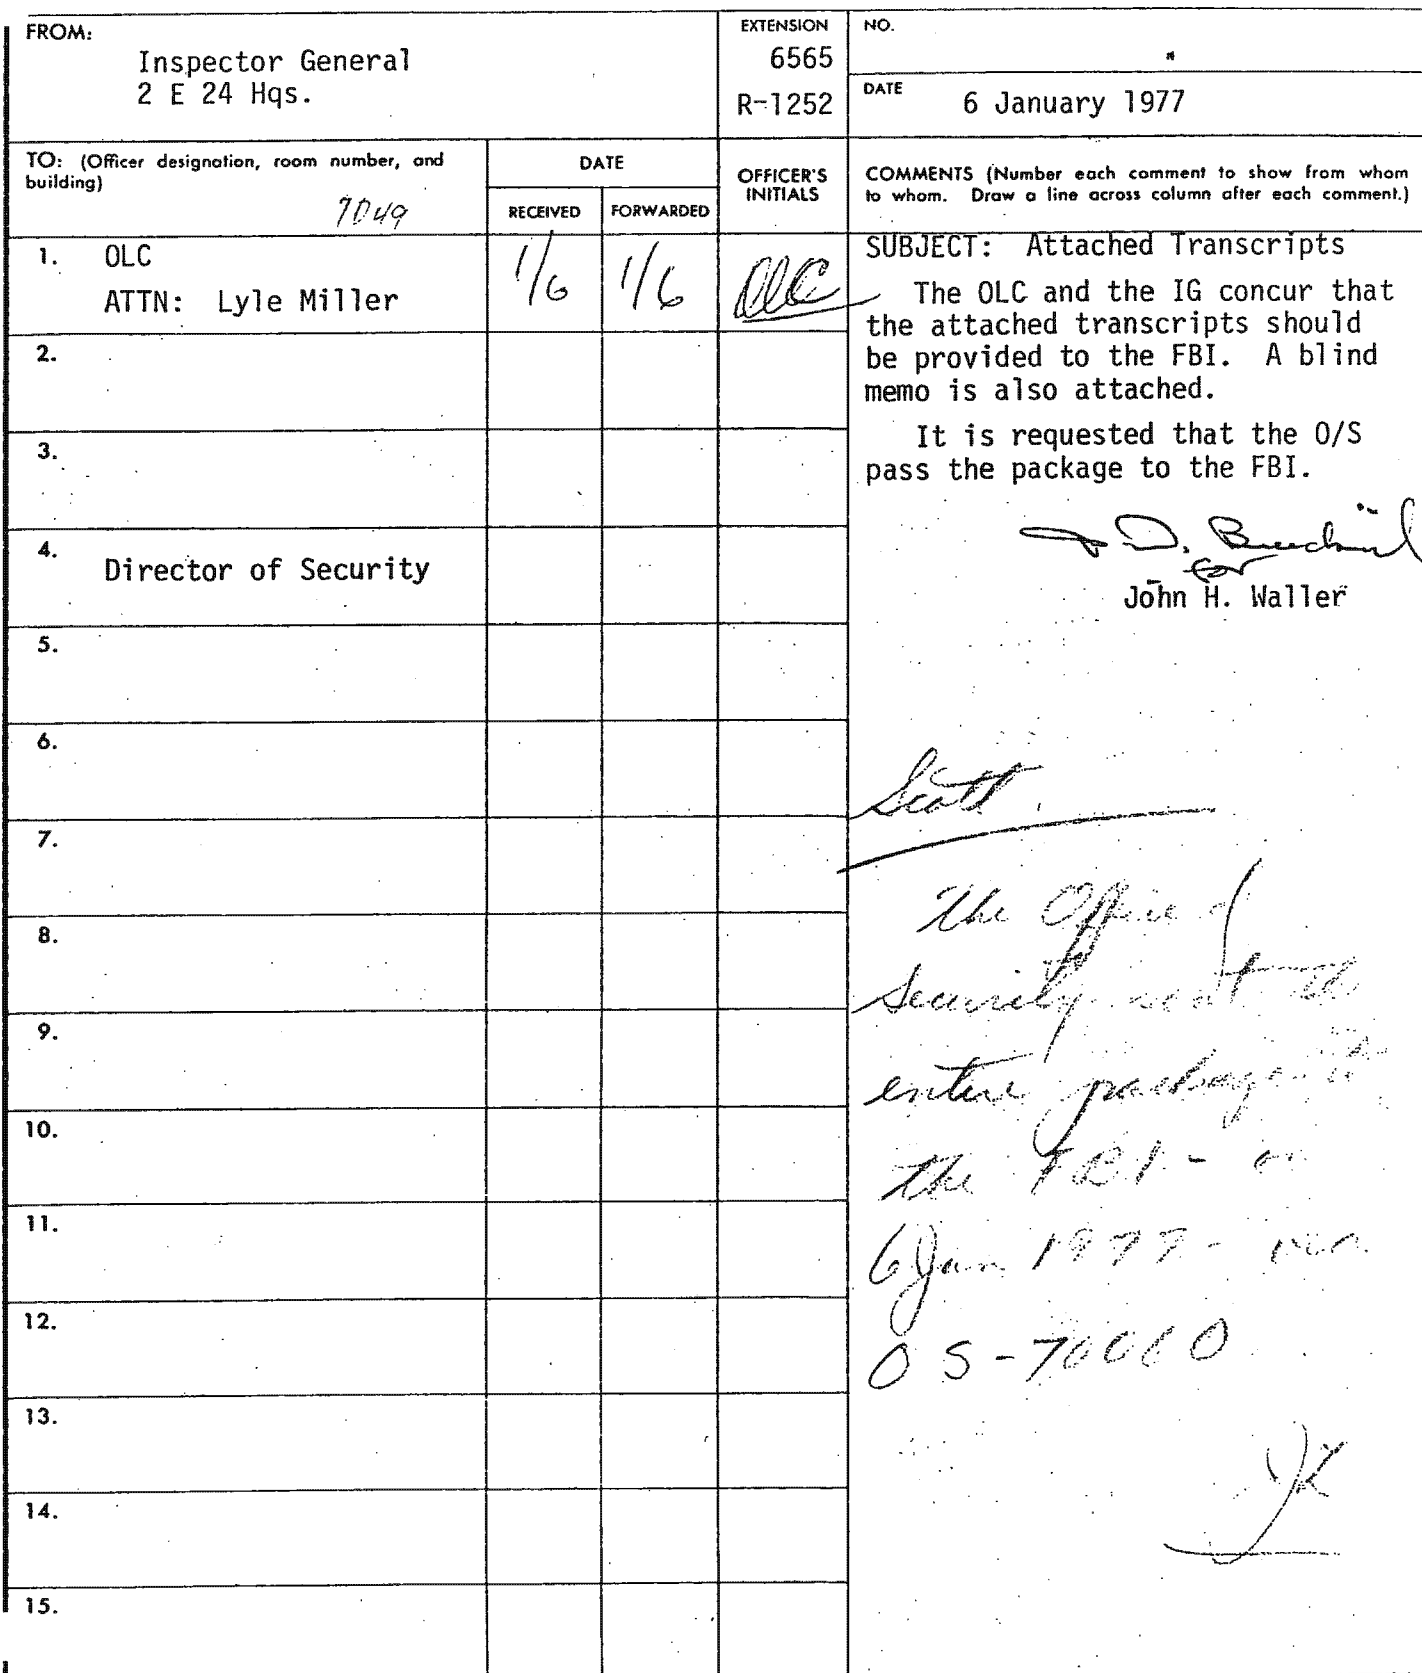 FROM:
Inspector General
2 E 24 Hqs.
EXTENSION
6565
R-1252
NO.
DATE
6 January 1977
TO: (Officer designation, room number, and
building)
7D49
DATE
RECEIVED
FORWARDED
OFFICER'S
INITIALS
COMMENTS (Number each comment to show from whom
to whom. Draw a line across column after each comment.)
1. OLC
ATTN: Lyle Miller
1/6
1/6
OLC
SUBJECT: Attached Transcripts
The OLC and the IG concur that
the attached transcripts should
be provided to the FBI. A blind
memo is also attached.
It is requested that the O/S
pass the package to the FBI.
for
John H. Waller
2.
3.
4.
Director of Security
5.
6.
7.
8.
9.
10.
11.
12.
13.
14.
15.
Scott
The Office of
Security sent the
entire package to
the FBI - on
6 Jan 1977 - via
OS-7